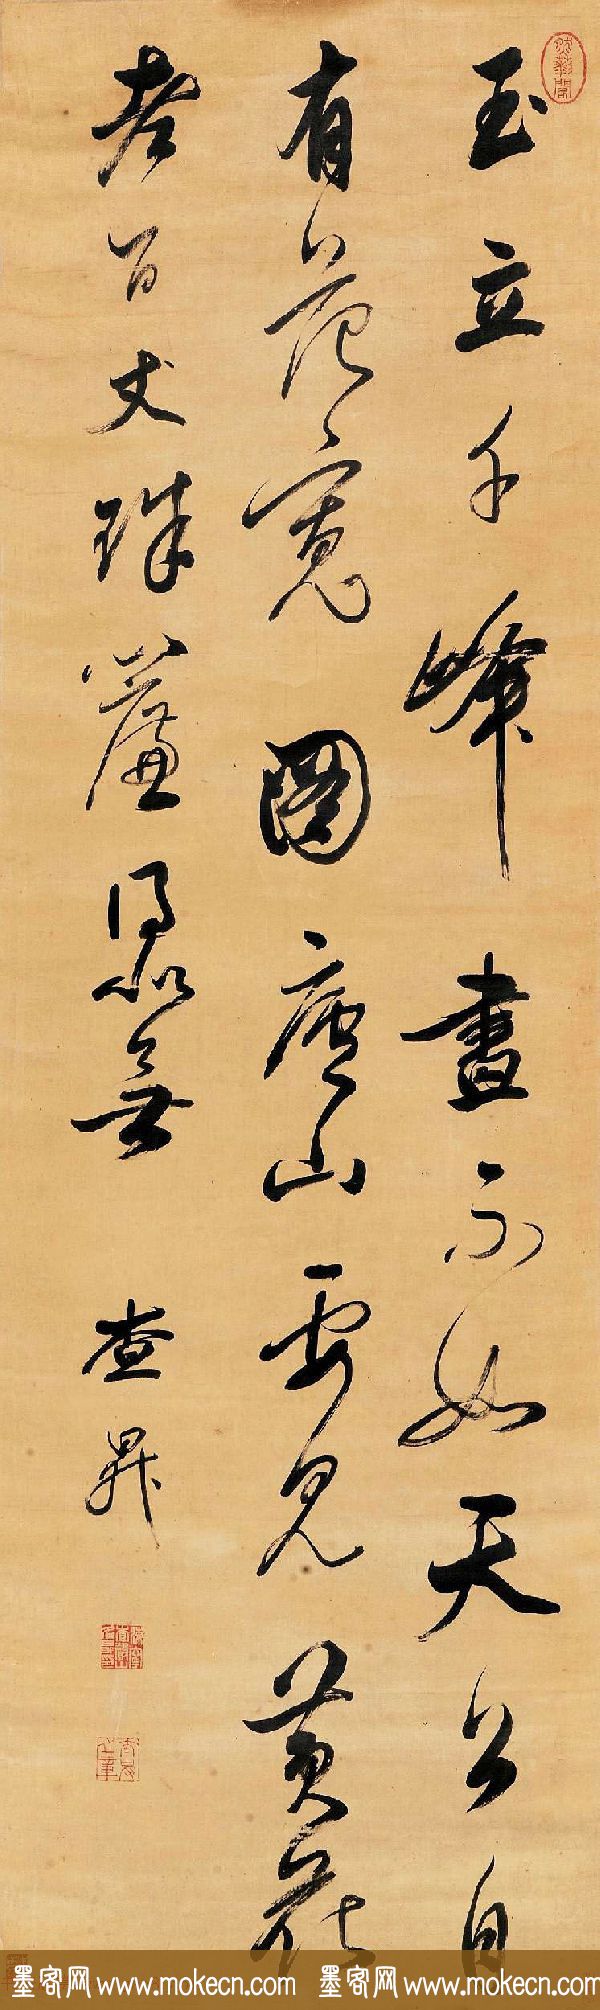 玉立千峰畫不如天公自
有范寬圖廬山要見黃花
老百丈珠簾得似無 查昇
墨客网 www.mokecn.com 墨客网 www.mokecn.com